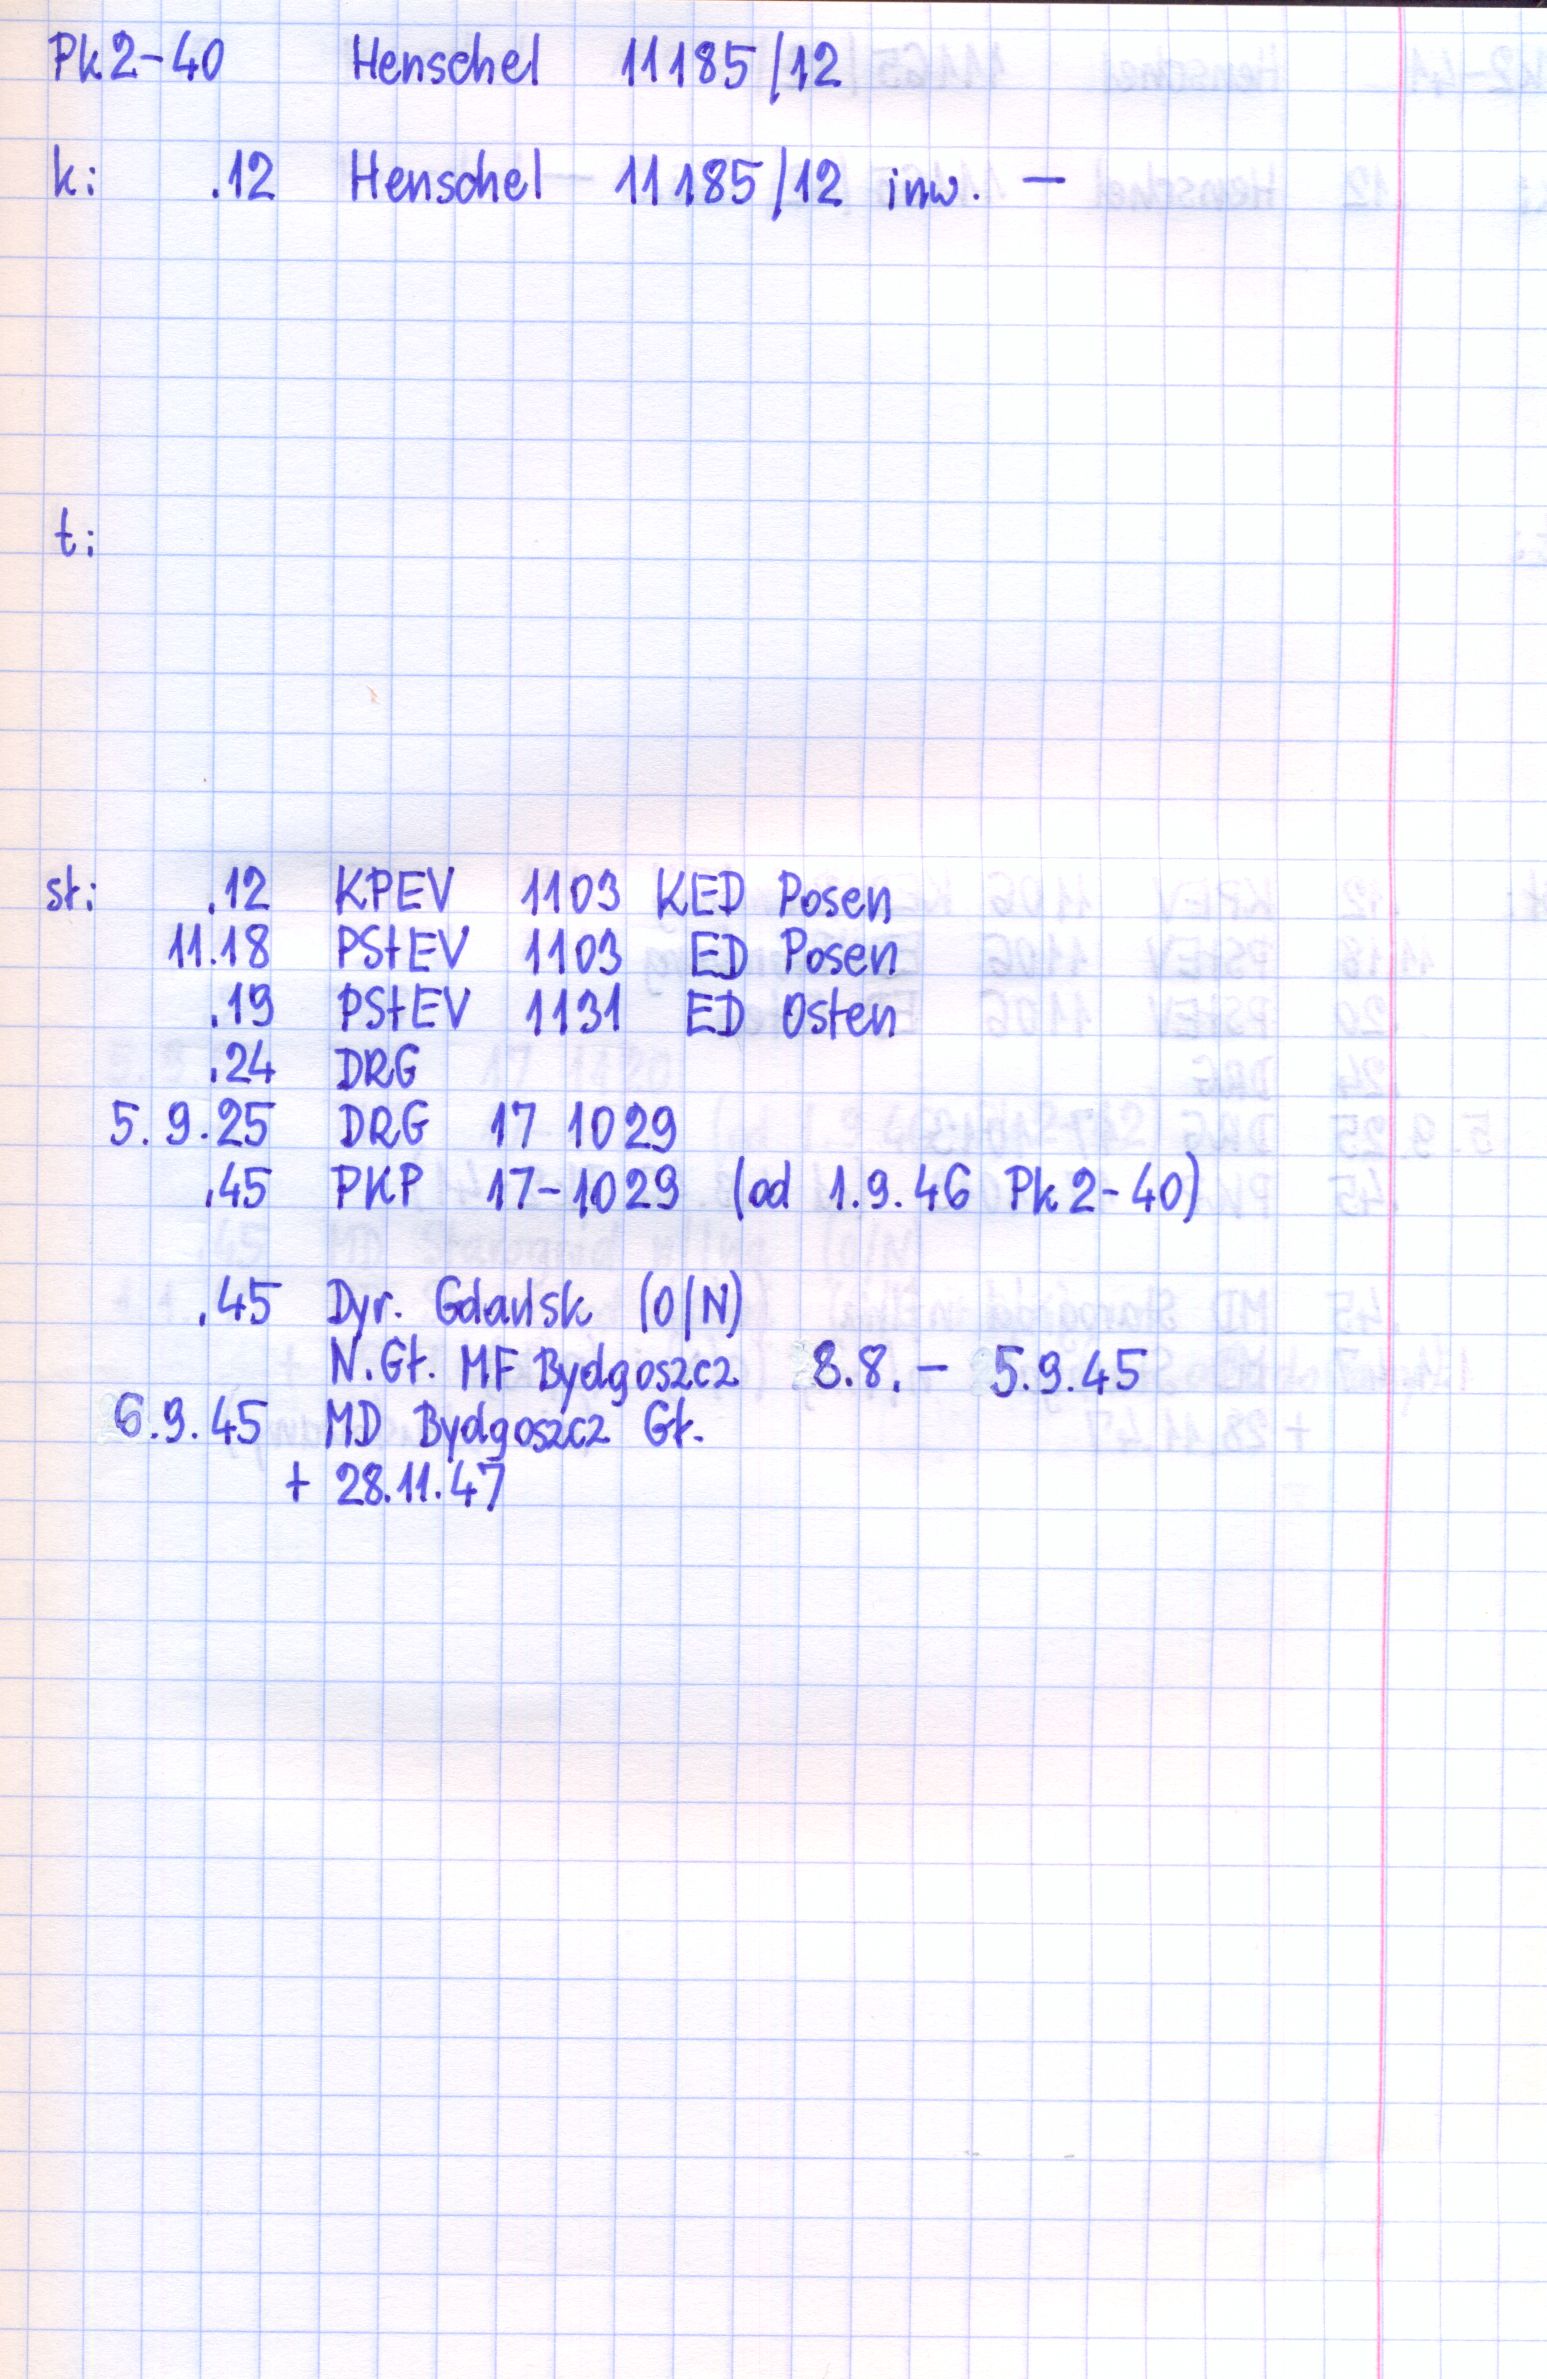 Pk2-40 Henschel 11185/12
k: .12 Henschel 11185/12 inw. —
t:
st: .12 KPEV 1103 KED Posen
11.18 PStEV 1103 ED Posen
.19 PStEV 1131 ED Osten
.24 DRG
5.9.25 DRG 17 1029
.45 PKP 17-1029 (od 1.9.46 Pk2-40)
.45 Dyr. Gdańsk (O/N)
N.Gł. MF Bydgoszcz 8.8. - 5.9.45
6.9.45 MD Bydgoszcz Gł.
+ 28.11.47